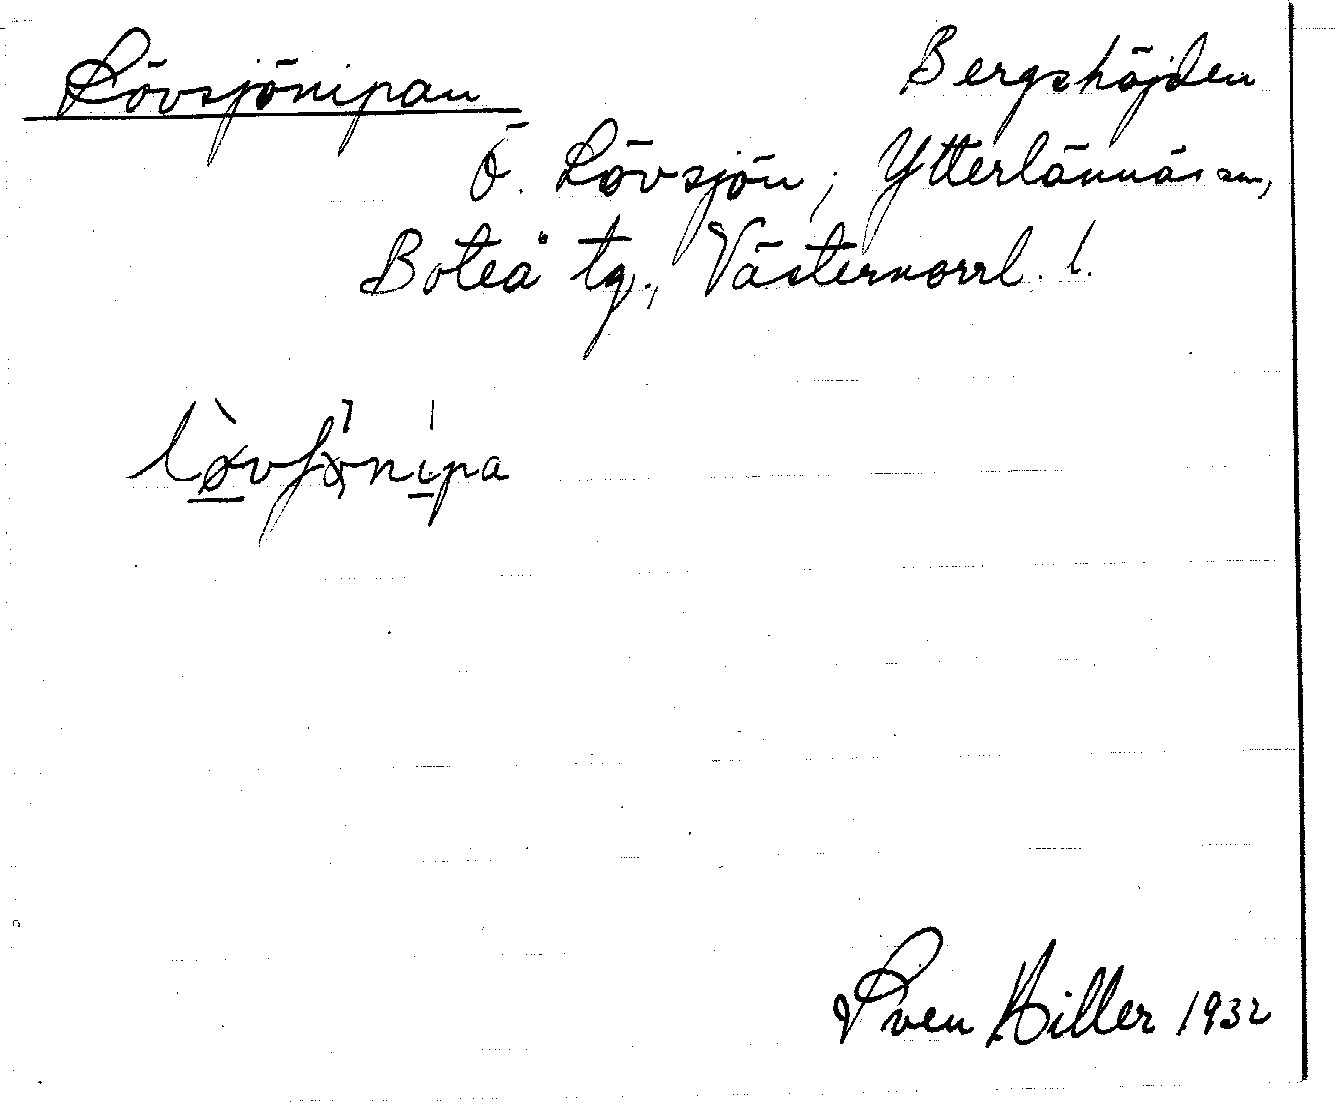 Lövsjönipan Bergshöjden
Ö. Lövsjön, Ytterlännäs sn,
Boteå tg., Västernorrl. l.
Sven Hiller 1932